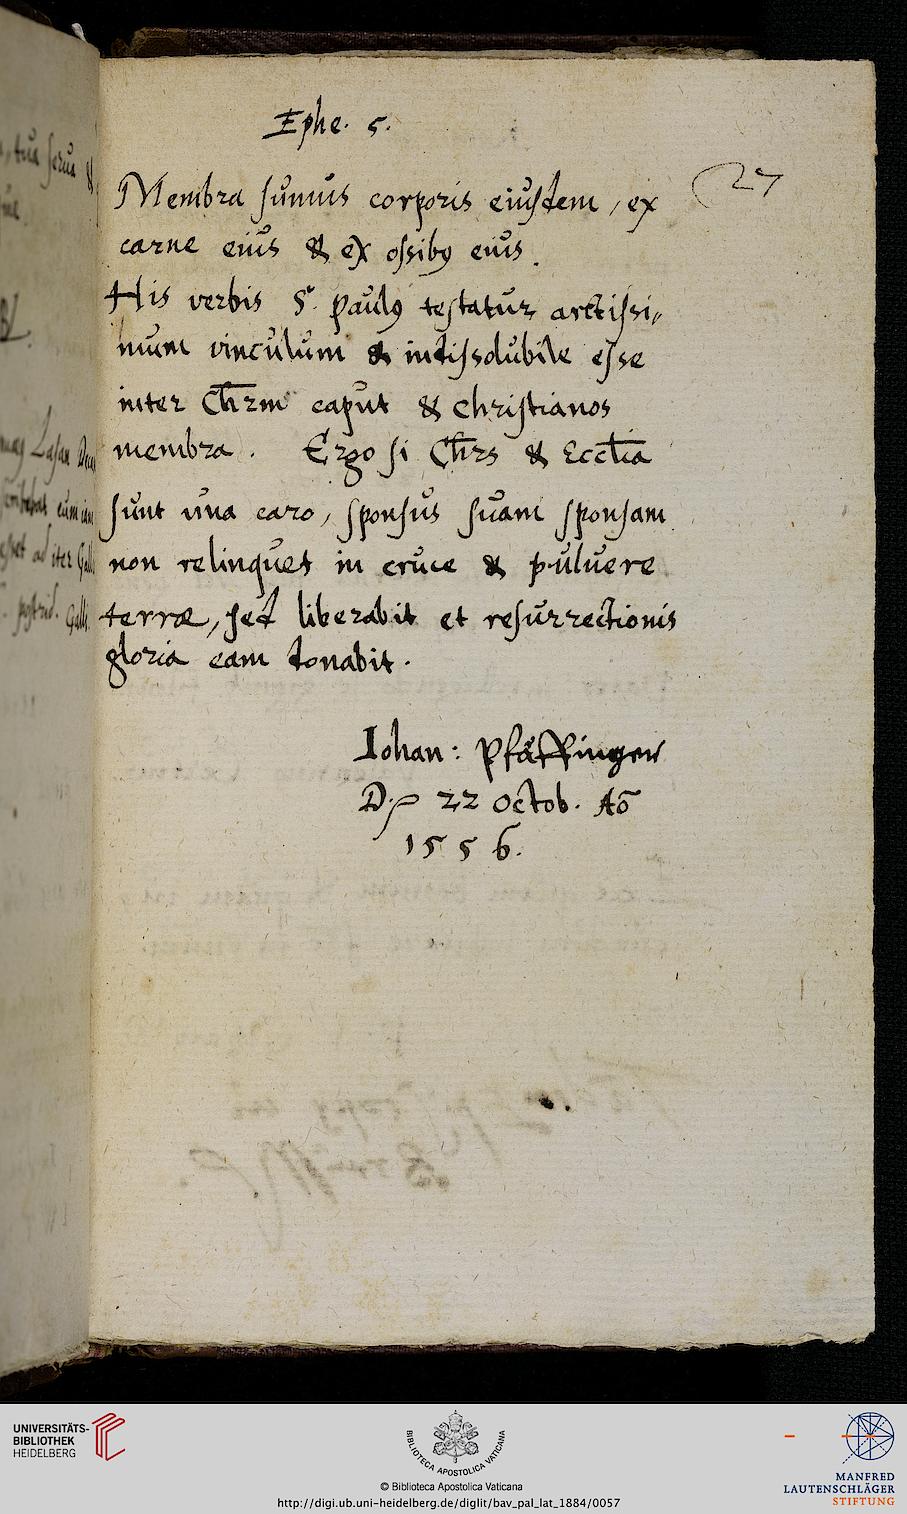 Ephe. 5.
27
Membra sumus corporis eiusdem, ex
carne eius & ex ossibꝰ eius.
His verbis S. Paulꝰ testatur arctissi,,
mum vinculum & indissolubile esse
inter Chr̄m caput & christianos
membra. Ergo si Chr̄s & Eccl̄ia
sunt una caro, sponsus suam sponsam
non relinquet in cruce & puluere
terræ, sed liberabit et resurrectionis
gloria eam donabit.
Iohan: Pfäffinger
D. 22 Octob. Aō
1556.
tua serua &
Lasan
eum iam
ad iter Gall
postrid. Galli
UNIVERSITÄTS-
BIBLIOTHEK
HEIDELBERG
BIBLIOTECA APOSTOLICA VATICANA
© Biblioteca Apostolica Vaticana
http://digi.ub.uni-heidelberg.de/diglit/bav_pal_lat_1884/0057
MANFRED
LAUTENSCHLÄGER
STIFTUNG